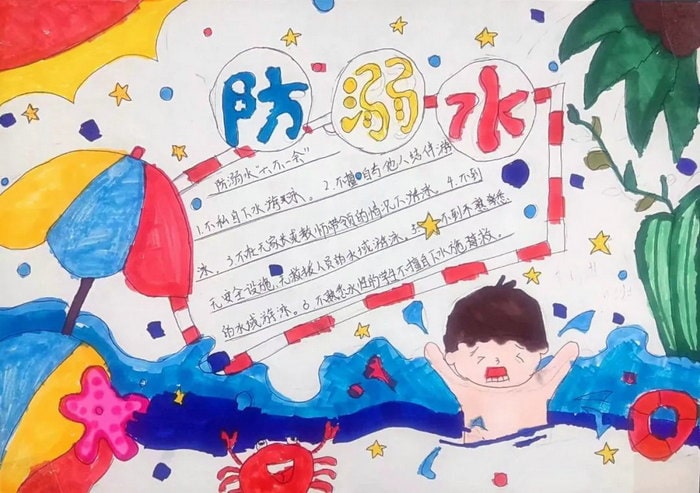 防溺水
防溺水"六不一会"
1.不私自下水游泳。2.不擅自与他人结伴游
泳。3.不在无家长或教师带领的情况下游泳。4.不到
无安全设施、无救援人员的水域游泳。5.不到不熟悉
的水域游泳。6.不熟悉水性的学生不擅自下水施救。